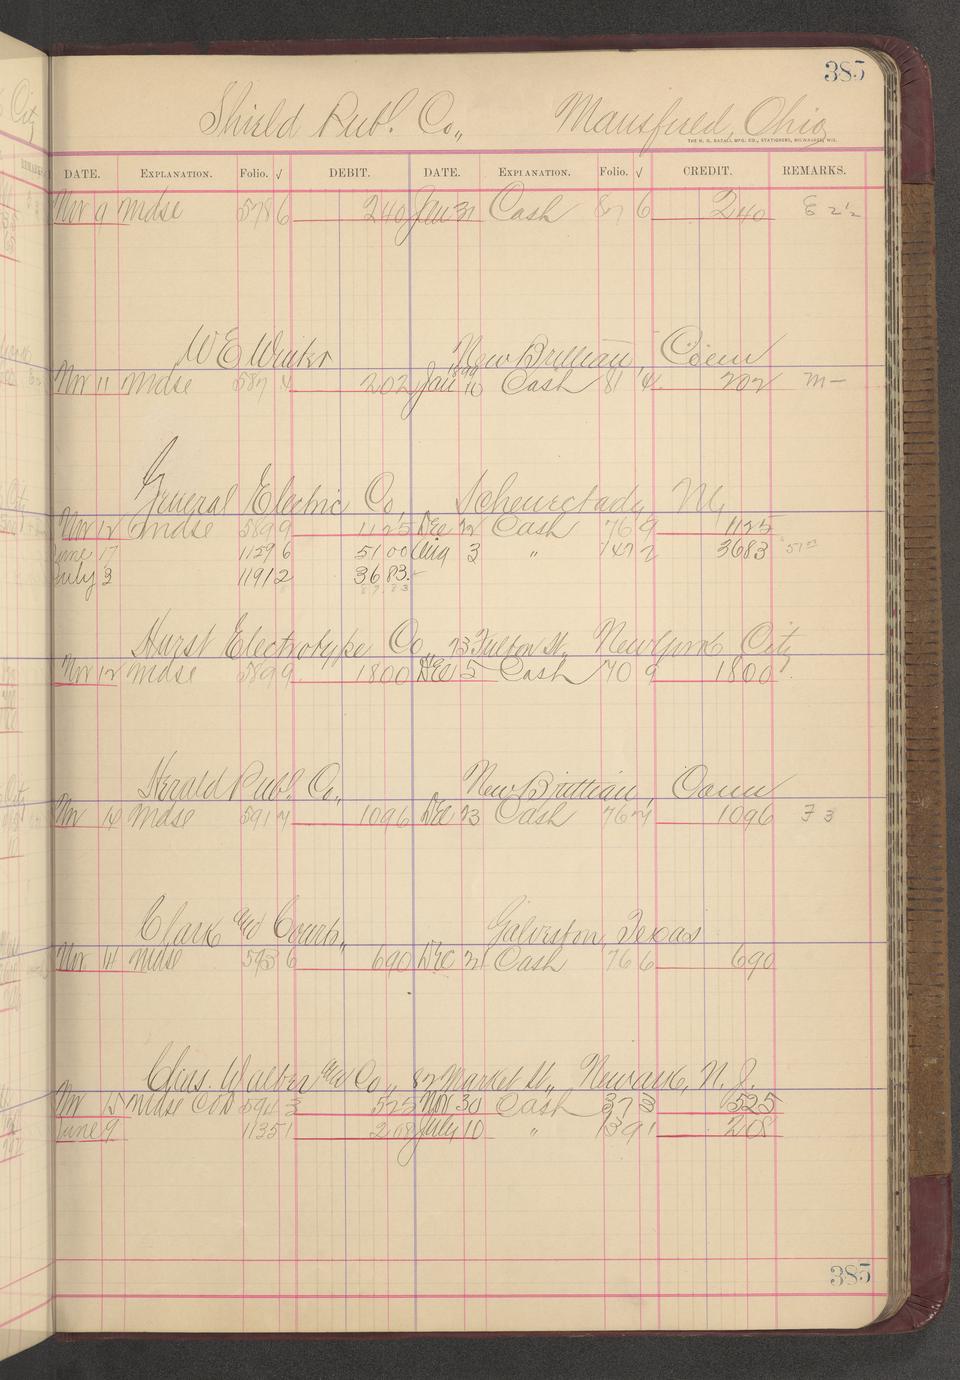 385
Shield Publ. Co., Mansfield, Ohio
THE H. H. BATALL MFG. CO., STATIONERS, MILWAUKEE, WIS.
DATE. EXPLANATION. Folio. √ DEBIT. DATE. EXPLANATION. Folio. √ CREDIT. REMARKS.
Nov 9 Mdse 578 6 240 Jan 31 Cash 87 6 240
W E New Brittian, Conn
Nov 11 Mdse 587 4 202 Jan 10 Cash 81 4 202 M—
General Electric Co, Schenectady NY
Nov 12 Mdse 589 9 1125 Dec 22 Cash 76 9 1125
June 17 1129 6 5100 Aug 3 " 147 2 3683
July 3 1191 2 3683
8783
Hurst Electrotype Co., 73 Fulton St., New York City
Nov 12 Mdse 589 9 1800 Dec 5 Cash 70 9 1800
Herald Publ. Co., New Brittian, Conn
Nov 14 Mdse 591 7 1096 Dec 23 Cash 76 7 1096 F 3
Clark and Courts, Galveston Texas
Nov 14 Mdse 593 6 690 Dec 21 Cash 76 6 690
Chas. Walter and Co., 82 Market St., Newark, N. J.
Nov 15 Mdse COD 594 3 525 Nov 30 Cash 373 525
June 9 1135 1 208 July 10 " 139 1 208
385